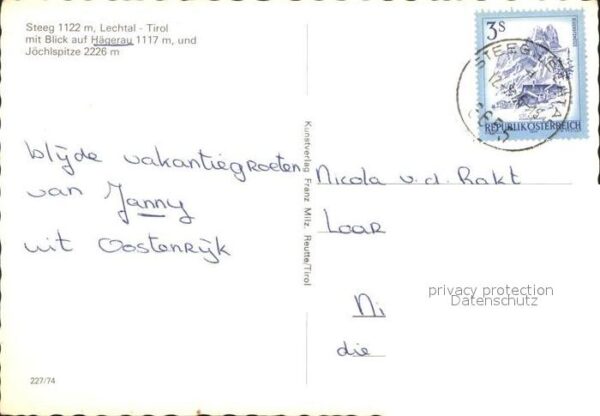 Steeg 1122 m, Lechtal - Tirol
mit Blick auf Hägerau 1117 m, und
Jöchlspitze 2226 m
3S
REPUBLIK ÖSTERREICH
STEEG
6655
blijde vakantiegroeten
van Janny
uit Oostenrijk
Kunstverlag Franz Milz, Reutte/Tirol
Nicola v.d. Rakt
Laar
Ni
die
privacy protection
Datenschutz
227/74